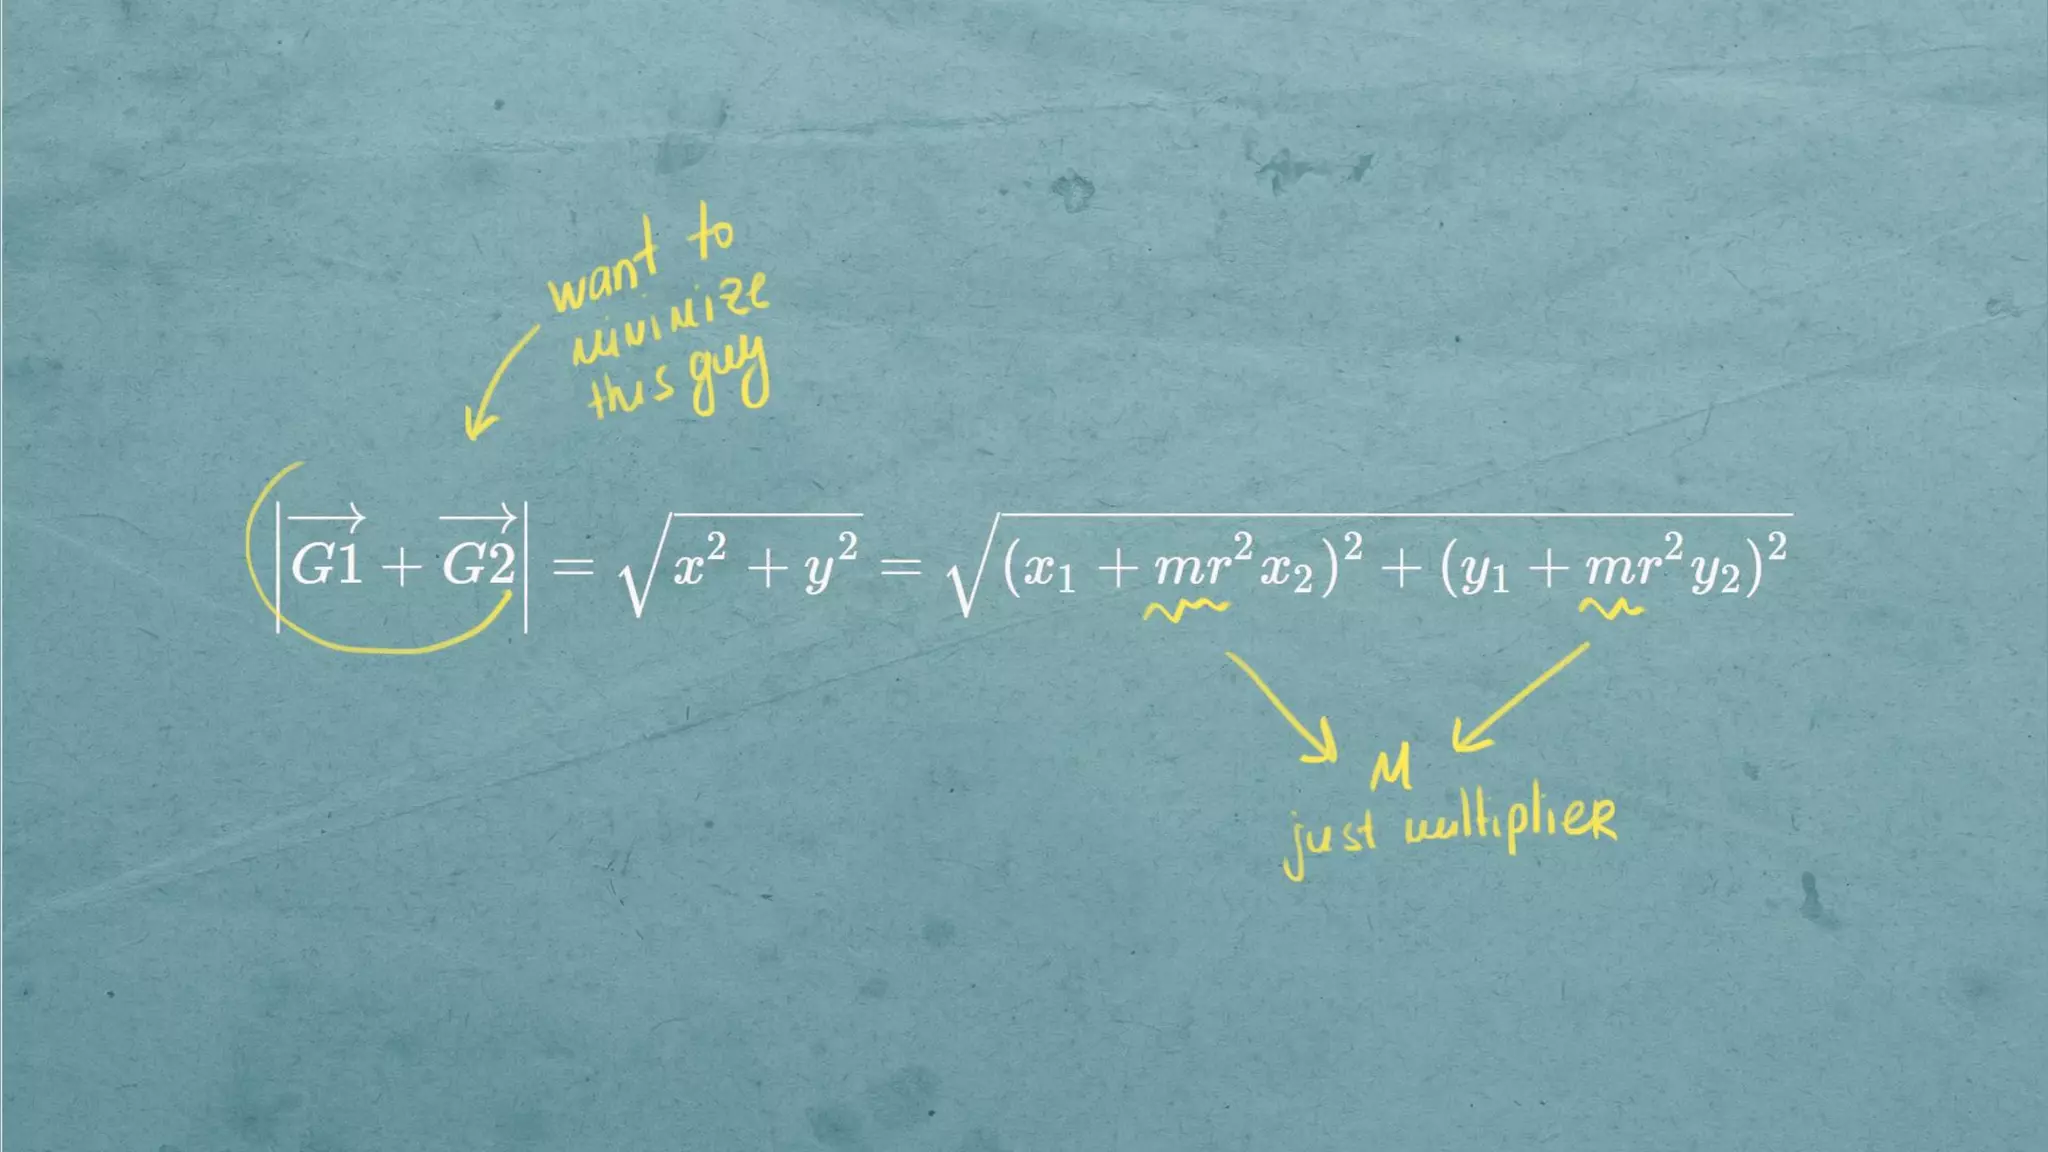 want to
minimize
this guy
|\overrightarrow{G1} + \overrightarrow{G2}| = \sqrt{x^2 + y^2} = \sqrt{(x_1 + mr^2x_2)^2 + (y_1 + mr^2y_2)^2}
M
just multiplier